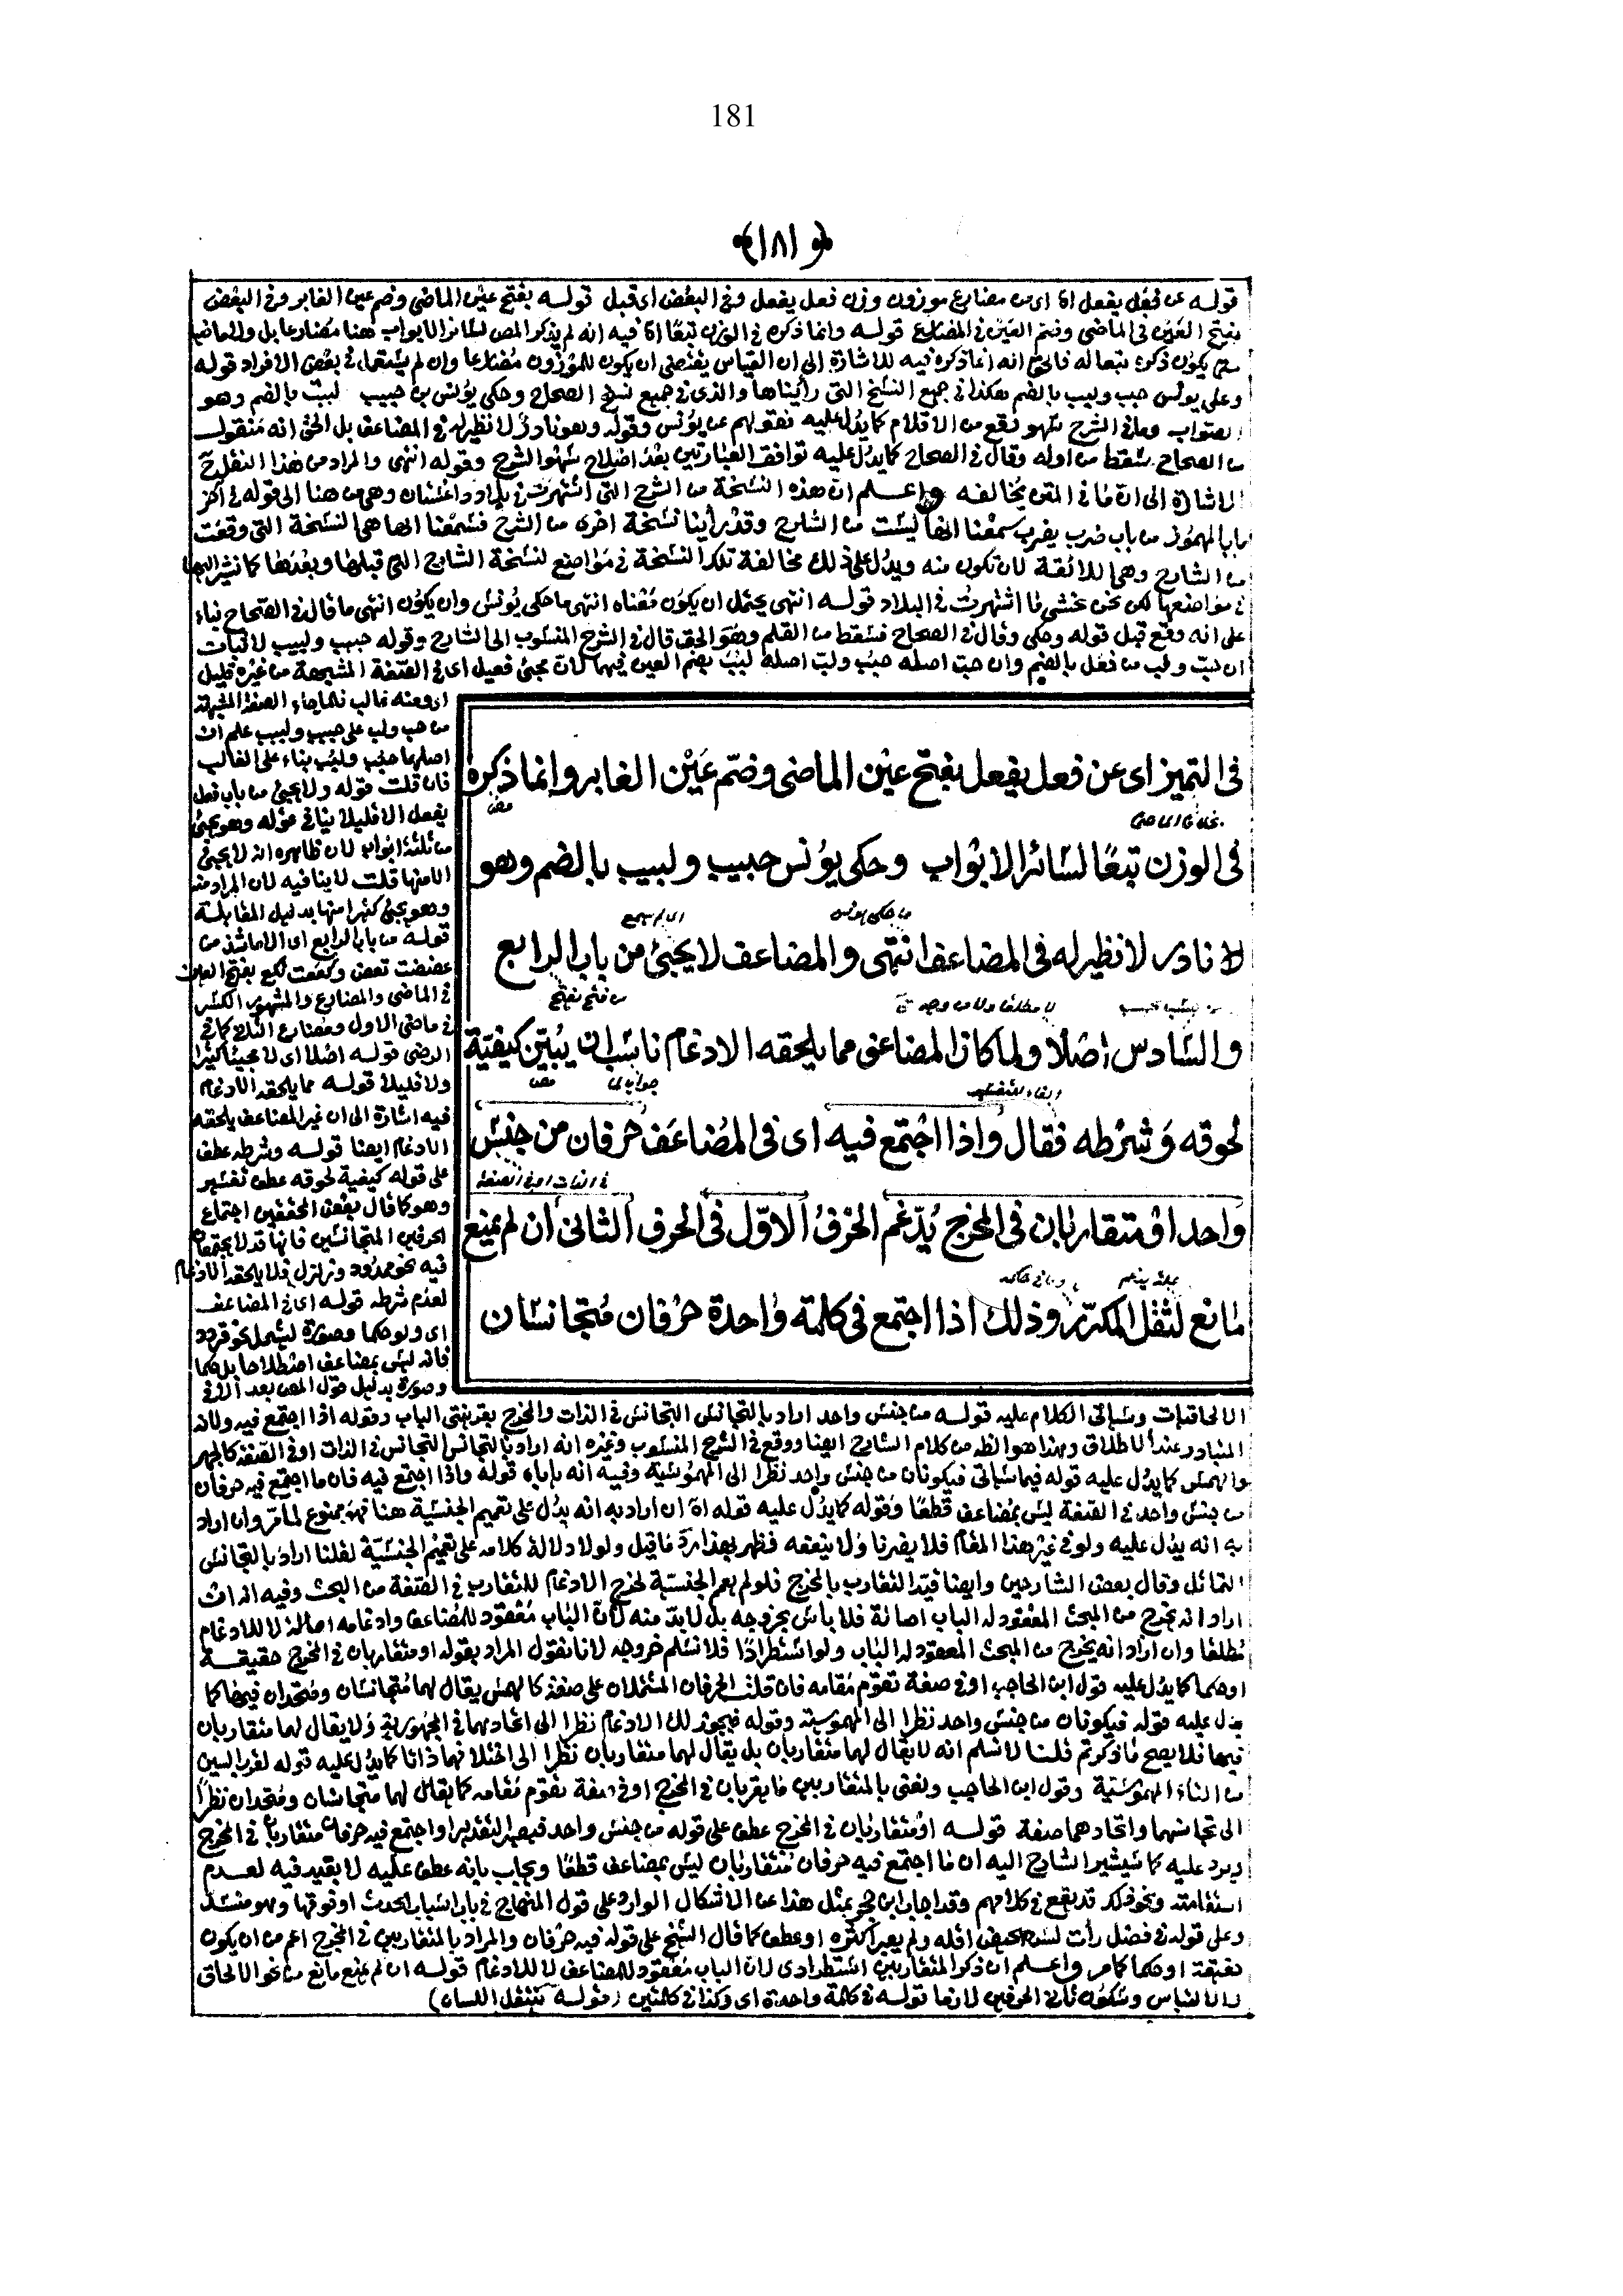 181
﴿١٨١﴾
قوله عن فعل يفعل اه اى من مضارع موزون وزن فعل يفعل وفى البعض اى قبل قوله بفتح عين الماضى وضم عين الغابر وفى البعض
بفتح العين فى الماضى وضم العين فى المضارع قوله وانما ذكره فى الوزن تبعًا اه فيه انه لم يذكر المص لسائر الابواب هنا مضارعا بل
يكون ذكره تبعا له فالحق انه انما ذكره فيه للاشارة الى ان القياس يقتضى ان يكون للموزون مضارعا وان لم يستعمل فى بعض الافراد قوله
وعلى يونس حبب ولبب بالضم هكذا فى جميع النسخ التى رأيناها والذى فى جميع نسخ الصحاح وحكى يونس بن حبيب لببت بالضم وهو
الصواب وما فى الشرح سهو وقع من الاقلام كما يدل عليه نقولهم عن يونس وقوله وهو نادر لا نظير له فى المضاعف بل الحق انه منقول
من الصحاح سقط من اوله وقال فى الصحاح كما يدل عليه توافق العبارتين بعد اصلاح سهو الشرح وقوله انتهى والمراد من هذا النقل
الاشارة الى ان ما فى المتن يخالفه واعلم ان هذه النسخة من الشرح التى اشتهرت فى وهى من هنا الى قوله فى آخر
باب المهموز من باب ضرب يضرب سمعنا انها ليست من الشارح وقد رأينا نسخة اخرى من الشرح فسمعنا انها هى النسخة التى وقعت
من الشارح وهى اللائقة لان تكون منه ويدل على ذلك مخالفة تلك النسخة فى مواضع لنسخة الشارح التى قبلها وبعدها كما نشير اليها
فى مواضعها لكن نحن نحشى ما اشتهرت فى البلاد قوله انتهى يحتمل ان يكون معناه انتهى ما حكى يونس وان يكون انتهى ما قال فى الصحاح بناء
على انه وقع قبل قوله وحكى وقال فى الصحاح فسقط من القلم وهو الحق قال فى الشرح المنسوب الى الشارح وقوله حبيب ولبيب لاثبات
ان حب ولب من فعل بالضم وان حب اصله حبب ولب اصله لبب بضم العين فيهما لان مجئ فعيل اى فى الصفة المشبهة من غيره قليل
ومنه غالب فلما جاء الصفة المشبهة
من حب ولب على حبيب ولبيب علم ان
اصلهما حبب ولبب بناء على الغالب
فان قلت قوله ولا يجئ من باب فعل
يفعل الا قليلا ينافى قوله وهو يجئ
من ثلثة ابواب لان ظاهره انه لا يجئ
الا منها قلت لا ينافيه لان المراد منه
وهو يجئ كثيرا منها بدليل المقابلة
قوله من باب الرابع اى الا ما شذ من
عضضت تعض وكععت تكع بفتح العين
فى الماضى والمضارع والمشهور الكسر
فى ماضى الاول ومضارع الثانى كما فى
الرضى قوله اصلا اى لا مجيئا كثيرا
ولا قليلا قوله مما يلحقه الادغام
فيه اشارة الى ان غير المضاعف يلحقه
الادغام ايضا قوله وشرطه عطف
على قوله كيفية لحوقه عطف تفسير
وهو كما قال بعض المحققين اجتماع
الحرفين المتجانسين فانها قد لا يجتمعان
فيه نحو ممدود وزلزل فلا يلحقه الادغام
لعدم شرطه قوله اى فى المضاعف
اى ولو حكما وصورة ليشمل نحو قردد
فانه ليس بمضاعف اصطلاحا بل حكما
وصورة بدليل قول المص بعد الا فى
فى التميز اى عن فعل يفعل بفتح عين الماضى وضم عين الغابر وانما ذكره
مص
فى الوزن تبعًا لسائر الابواب وحكى يونس حبيب ولبيب بالضم وهو
ما حكى يونس
اى لم يسمع
لاة نادر لا نظير له فى المضاعف انتهى والمضاعف لا يجئ من باب الرابع
من فتح يفتح
والسادس اصلا ولما كان المضاعف مما يلحقه الادغام ناسب ان يبين كيفية
جواب لما
مص
لحوقه وشرطه فقال واذا اجتمع فيه اى فى المضاعف حرفان من جنس
فى الذات او فى الصفة
واحد او متقاربان فى المخرج يدغم الحرف الاول فى الحرف الثانى ان لم يمنع
مانع لثقل المكرر وذلك اذا اجتمع فى كلمة واحدة حرفان متجانسان
الالحاقيات وسيأتى الكلام عليه قوله من جنس واحد اراد بالتجانس التجانس فى الذات والمخرج بقرينتى الباب وقوله اذا اجتمع فيه ولانه
المتبادر عند الاطلاق وهذا هو الظ من كلام الشارح ايضا ووقع فى الشرح المنسوب وغيره انه اراد بالتجانس التجانس فى الذات او فى الصفة كالجهر
والهمس كما يدل عليه قوله فيما سيأتى فيكونان من جنس واحد نظرا الى المهموسية وفيه انه باباه قوله واذا اجتمع فيه فان ما اجتمع فيه حرفان
من جنس واحد فى الصفة ليس بمضاعف قطعا وقوله كما يدل عليه قوله اه ان اراد به انه يدل على تعميم الجنسية هنا فهو ممنوع لما مر وان اراد
به انه يدل عليه ولو فى غير هذا المقام فلا يضرنا ولا ينفعه فظهر بهذا رد ما قيل ولولا دلالة كلامه على تعميم الجنسية لقلنا اراد بالتجانس
التماثل وقال بعض الشارحين وايضا قيد التقارب بالمخرج فلو لم يعم الجنسية لخرج الادغام للتقارب فى الصفة من البحث وفيه انه ان
اراد انه يخرج من المبحث المعقود له الباب اصالة فلا بأس بخروجه بل لا بد منه لان الباب معقود للمضاعف وادغامه اصالة لا للادغام
مطلقا وان اراد انه يخرج من المبحث المعقود له الباب ولو استطرادًا فلا نسلم خروجه لانا نقول المراد بقوله او متقاربان فى المخرج حقيقة
او حكما كما يدل عليه قول ابن الحاجب او فى صفة تقوم مقامه فان قلت الحرفان المشتملان على صفة كالهمس يقال لهما متجانسان ومتحدان فيها كما
يدل عليه قوله فيكونان من جنس واحد نظرا الى المهموسية وقوله فيجوز لك الادغام نظرا الى اتحادهما فى المجهورية ولا يقال لهما متقاربان
فيها فلا يصح ما ذكرتم قلنا لا نسلم انه لا يقال لهما متقاربان بل يقال لهما متقاربان نظرا الى اختلافهما ذاتا كما يدل عليه قوله لقرب السين
من التاء المهموسية وقول ابن الحاجب ونعنى بالمتقاربين ما يقربان فى المخرج او فى صفة تقوم مقامه كما يقال لهما متجانسان ومتحدان نظرا
الى تجانسهما واتحادهما صفة قوله او متقاربان فى المخرج عطف على قوله من جنس واحد فيصير التقدير او اجتمع فيه حرفان متقاربان فى المخرج
ويرد عليه كما سيشير الشارح اليه ان ما اجتمع فيه حرفان متقاربان ليس بمضاعف قطعًا ويجاب بانه عطف عليه لا بقيد فيه لعدم
استقامته ونحو ذلك قد يقع فى كلامهم وقد اجاب ابن حجر بمثل هذا عن الاشكال الوارد على قول المنهاج فى باب اسباب الحدث
وعلى قوله فى فصل رأت اقله ولم يعبر اكثره او عطف كما قال الشيخ على قوله فيه حرفان والمراد بالمتقاربين فى المخرج اعم من ان يكون
حقيقة او حكما كما مر واعلم ان ذكر المتقاربين استطرادى لان الباب معقود للمضاعف لا للادغام قوله ان لم يمنع مانع من نحو الالحاق
والالتباس وسكون ثانى الحرفين لازما قوله فى كلمة واحدة اى وكذا فى كلمتين (قوله اللسان)